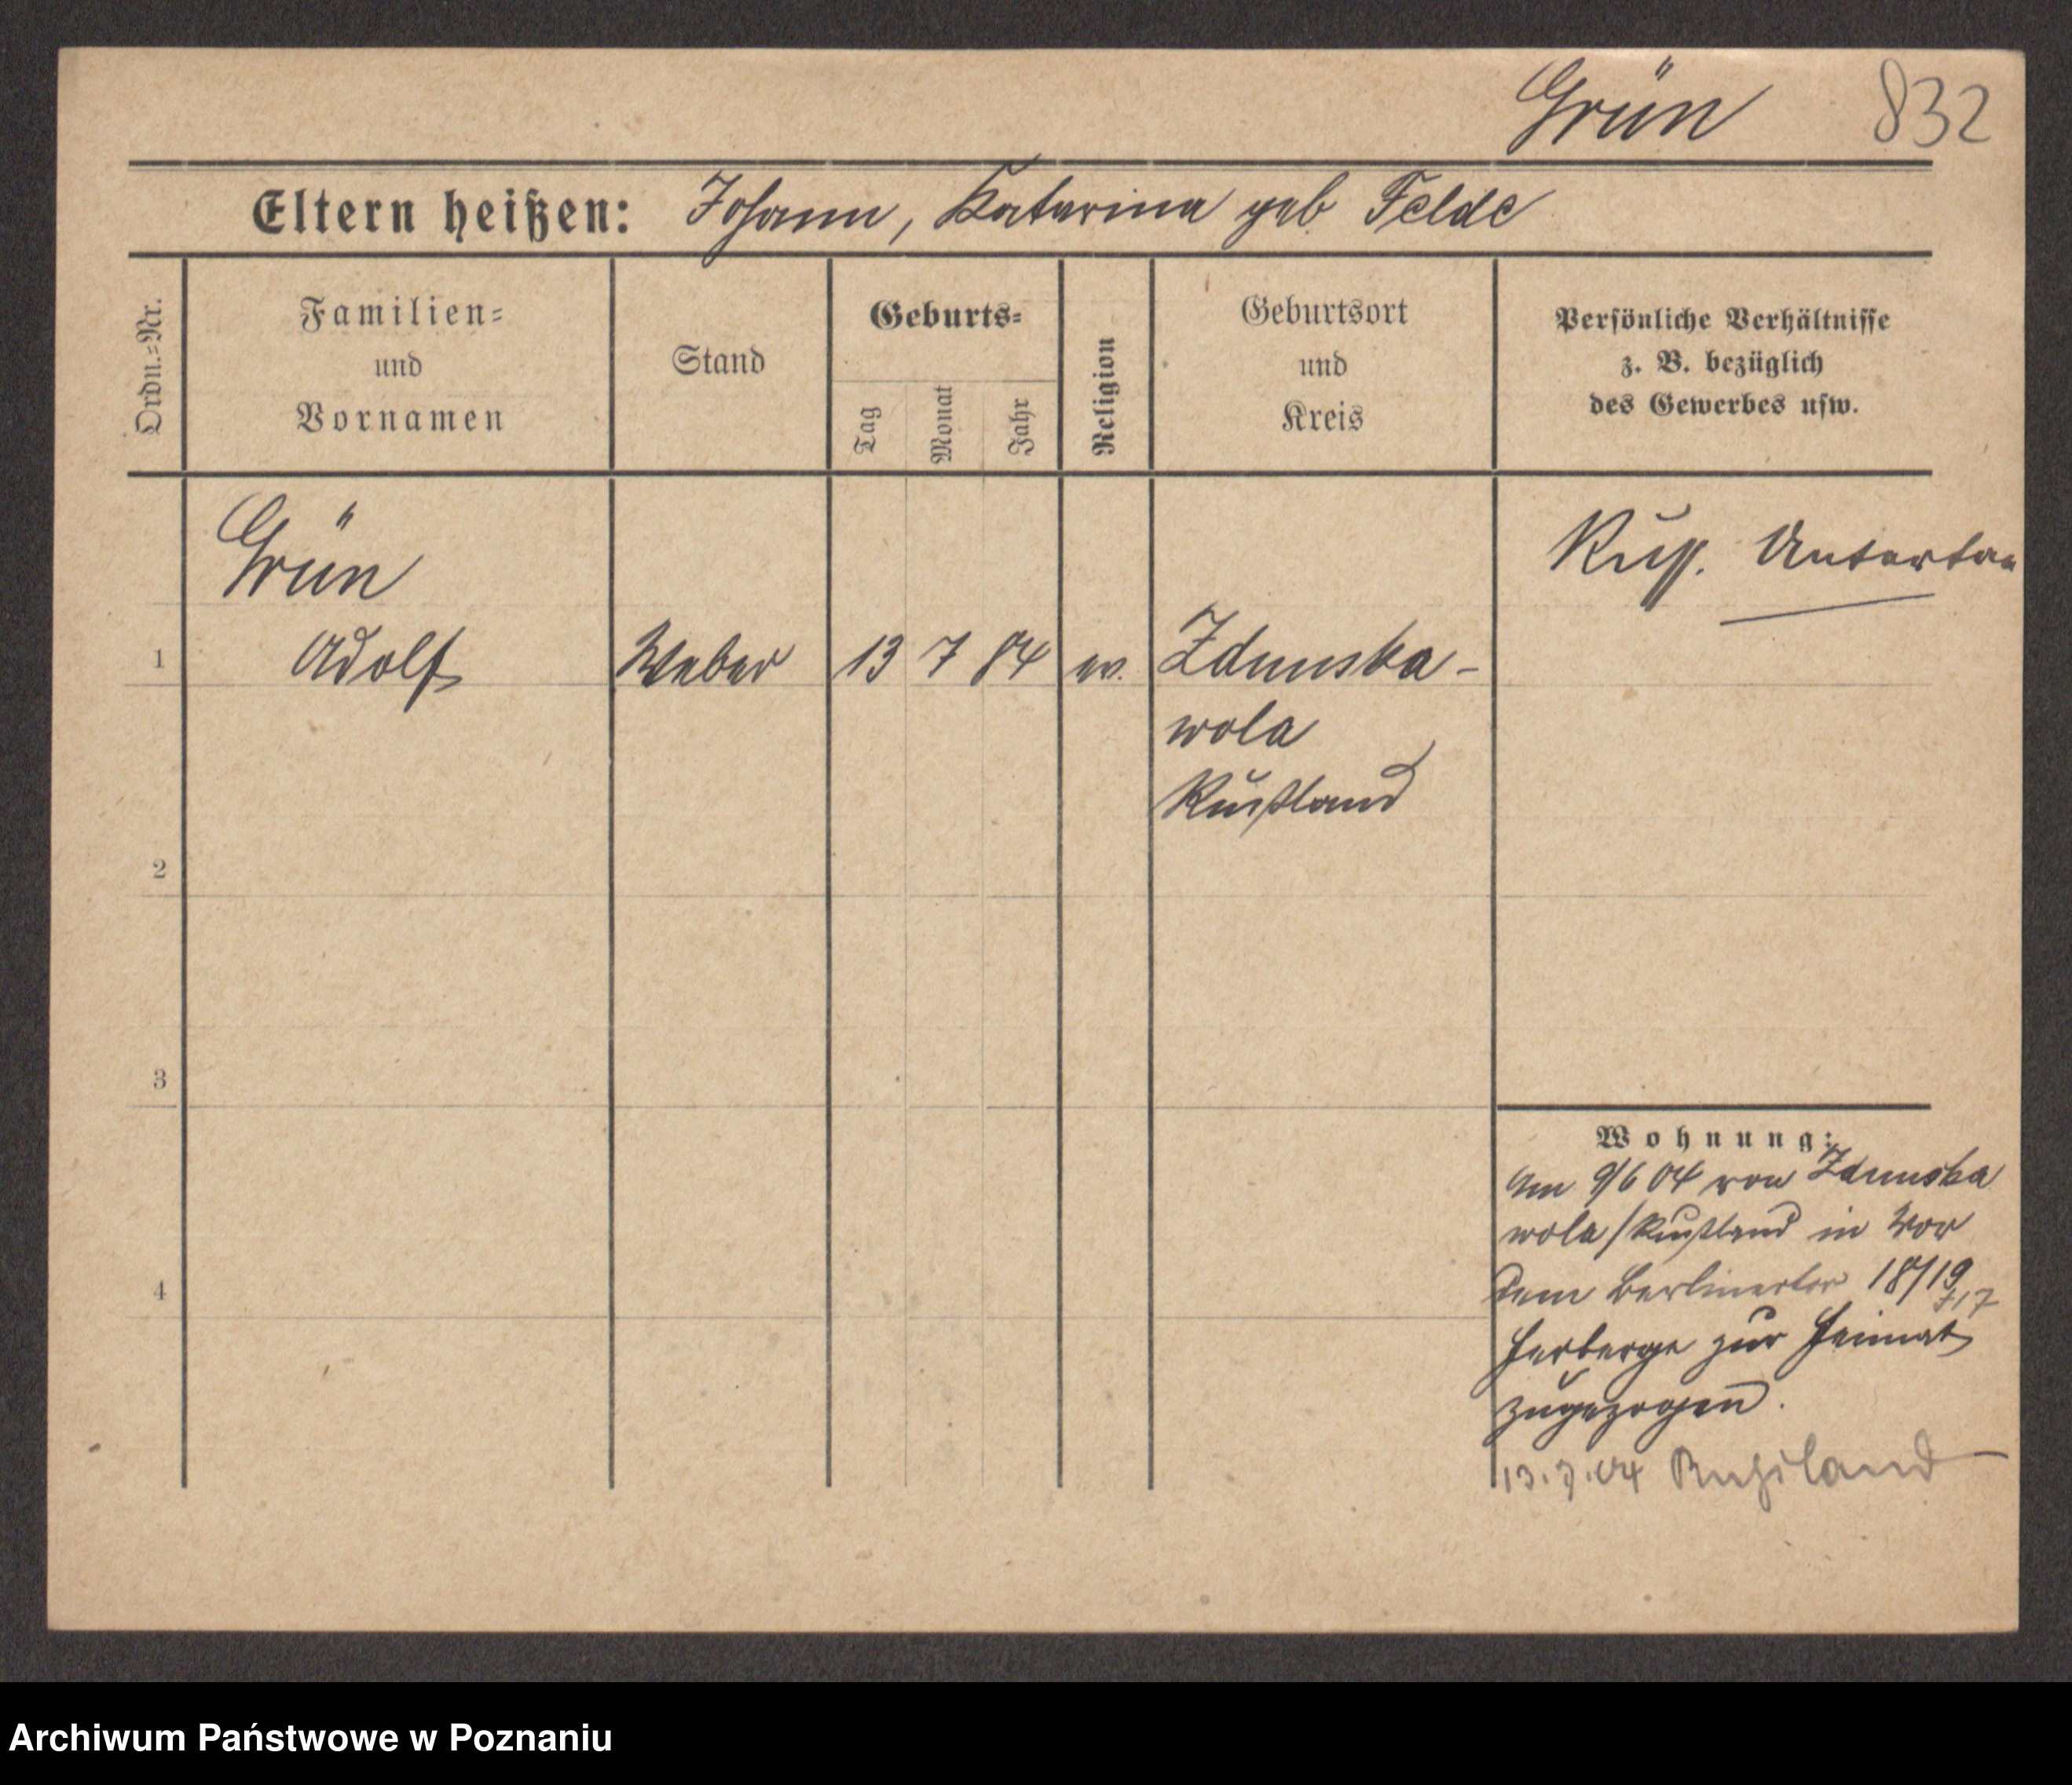 Grün 832
Eltern heißen: Johann, Katarina geb Felde
Ordn.=Nr.
Familien=
und
Vornamen
Stand
Geburts=
Tag
Monat
Jahr
Religion
Geburtsort
und
Kreis
Persönliche Verhältnisse
z. B. bezüglich
des Gewerbes usw.
Grün
Russ. Untertan
1 Adolf Weber 13 7 84 ev. Zdunska-
wola
Rußland
2
3
4
Wohnung:
Am 9/6 04 von Zdunska
wola/Rußland in Vor
dem Berlinertor 18/19
Herberge zur Heimat
zugezogen.
13.7.04 Russland
Archiwum Państwowe w Poznaniu